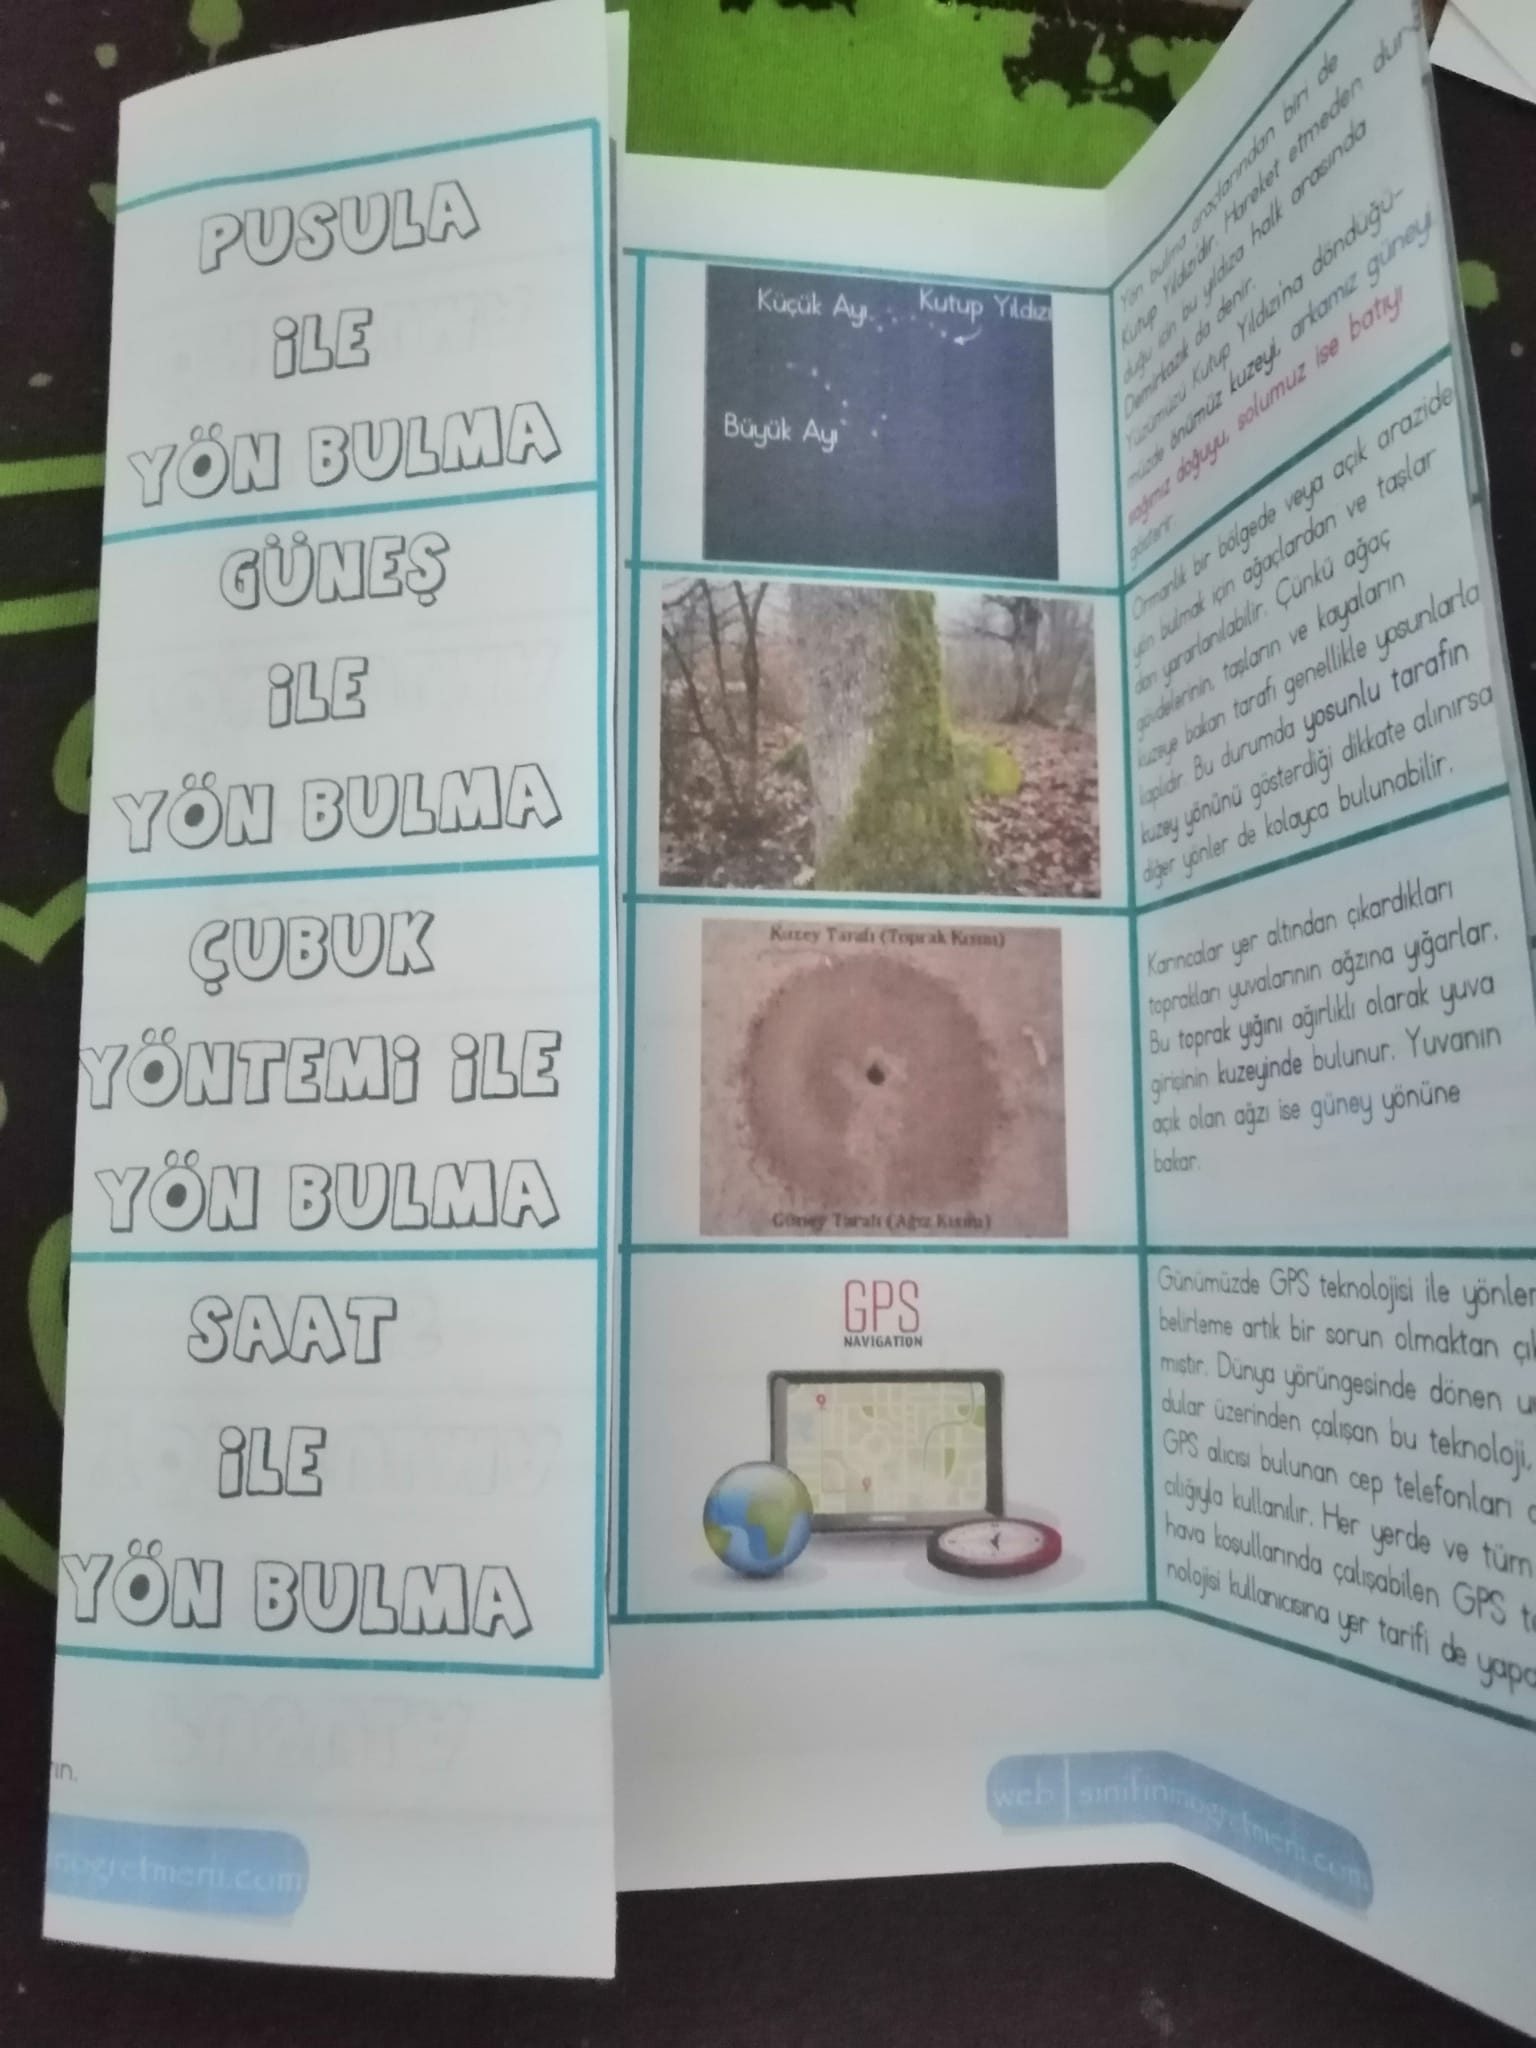 PUSULA
İLE
YÖN BULMA
GÜNEŞ
İLE
YÖN BULMA
ÇUBUK
YÖNTEMİ İLE
YÖN BULMA
SAAT
İLE
YÖN BULMA
ın.
nogretmeni.com
Küçük Ayı
Kutup Yıldızı
Büyük Ayı
Kuzey Tarafı (Toprak Kısmı)
Güney Tarafı (Ağız Kısmı)
GPS
NAVIGATION
Yön bulma araçlarından biri de
Kutup Yıldızı'dır. Hareket etmeden dur-
duğu için bu yıldıza halk arasında
Demirkazık da denir.
Yüzümüzü Kutup Yıldızı'na döndüğü-
müzde önümüz kuzeyi, arkamız güneyi,
sağımız doğuyu, solumuz ise batıyı
gösterir.
Ormanlık bir bölgede veya açık arazide
yön bulmak için ağaçlardan ve taşlar
dan yararlanılabilir. Çünkü ağaç
gövdelerinin, taşların ve kayaların
kuzeye bakan tarafı genellikle yosunlarla
kaplıdır. Bu durumda yosunlu tarafın
kuzey yönünü gösterdiği dikkate alınırsa
diğer yönler de kolayca bulunabilir.
Karıncalar yer altından çıkardıkları
toprakları yuvalarının ağzına yığarlar.
Bu toprak yığını ağırlıklı olarak yuva
girişinin kuzeyinde bulunur. Yuvanın
açık olan ağzı ise güney yönüne
bakar.
Günümüzde GPS teknolojisi ile yönler
belirleme artık bir sorun olmaktan çık
mıştır. Dünya yörüngesinde dönen u
dular üzerinden çalışan bu teknoloji,
GPS alıcısı bulunan cep telefonları
cılığıyla kullanılır. Her yerde ve tüm
hava koşullarında çalışabilen GPS te
nolojisi kullanıcısına yer tarifi de yapa
web | sinifinmogretmeni.com